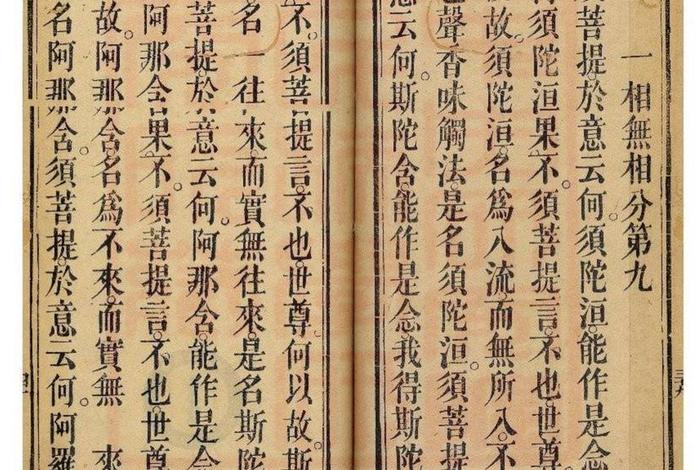 一相無相分第九
菩提。於意云何。須陀洹。能作是念
須陀洹果不。須菩提言。不也。世尊
故。須陀洹。名爲入流。而無所入。不
聲香味觸法。是名須陀洹。須菩提
意云何。斯陀含。能作是念。我得斯陀
不。須菩提言。不也。世尊。何以故。斯
名一往來。而實無往來。是名斯陀
菩提。於意云何。阿那含。能作是念
阿那含果不。須菩提言。不也。世尊
故。阿那含。名爲不來。而實無 來
名阿那含。須菩提。於意云何。阿羅